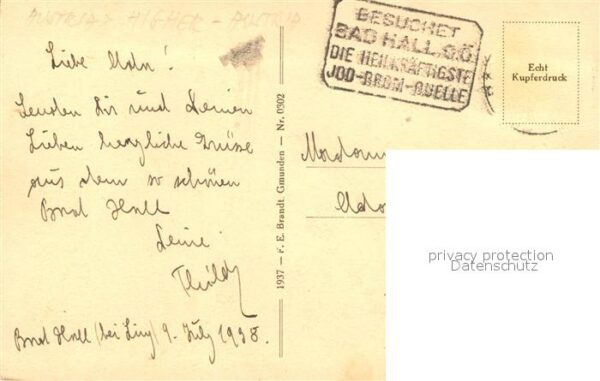 AUSTRIA - HIGHER - AUSTRIA
Liebe !
Senden Dir und Deinen
Lieben herzliche Grüsse
aus dem so schönen
Bad Hall
Deine
Bad Hall (bei Linz) 9. July 1938.
1937 – F. E. Brandt, Gmunden – Nr. 0302
BESUCHET
BAD HALL, O.Ö.
DIE HEILKRÄFTIGSTE
JOD-BROM-QUELLE
Echt
Kupferdruck
privacy protection
Datenschutz